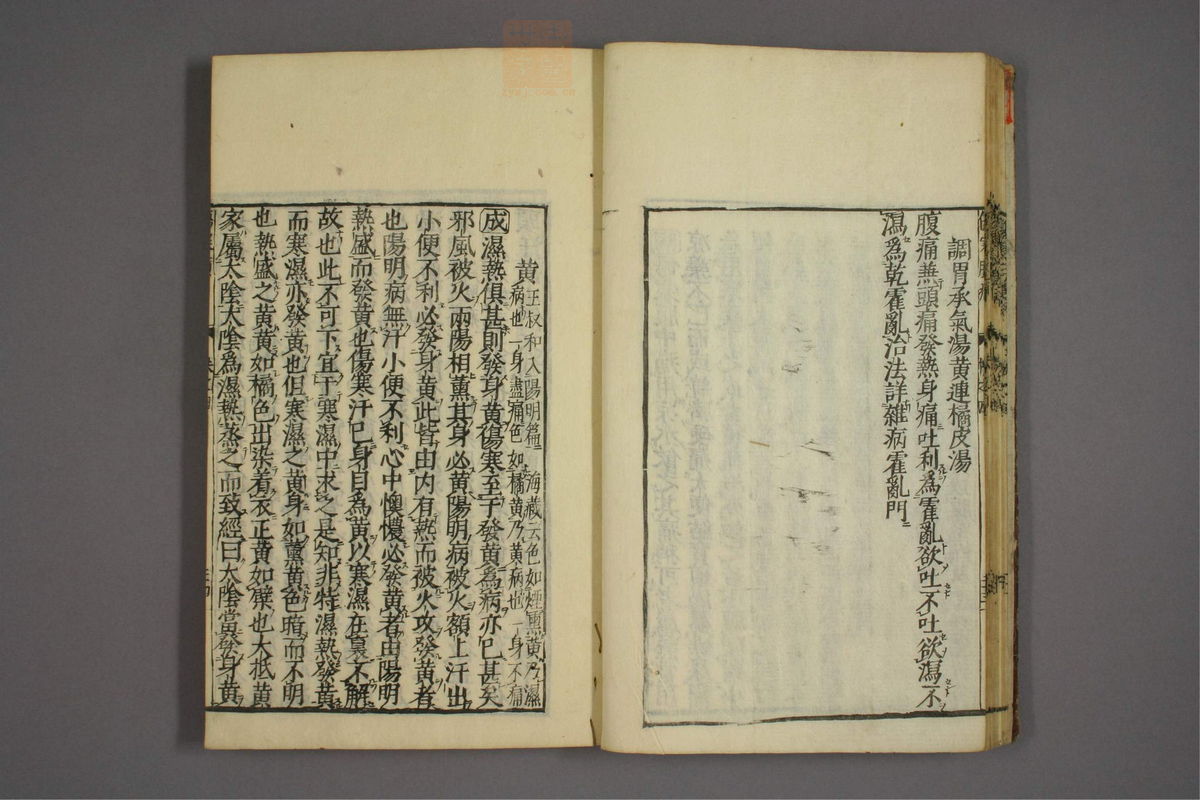 調胃承氣湯黄連橘皮湯
腹痛無頭痛發熱身痛吐利爲霍亂欲吐不吐欲瀉不
瀉爲乾霍亂治法詳雜病霍亂門
黄
王叔和入陽明篇 海藏云色如煙熏黄乃濕
病也一身盡痛色如橘黄乃黄病也一身不痛
成濕熱俱甚則發身黄傷寒至于發黄爲病亦已甚矣
邪風被火兩陽相薰其身必黄陽明病被火額上汗出
小便不利必發身黄此皆由内有熱而被火攻發黄者
也陽明病無汗小便不利心中懊憹必發黄者由陽明
熱盛而發黄也傷寒汗已身目爲黄以寒濕在裏不解
故也此不可下宜于寒濕中求之是知非特濕熱發黄
而寒濕亦發黄也但寒濕之黄身如薰黄色暗而不明
也熱盛之黄黄如橘色出染着衣正黄如蘗也大抵黄
家屬太陰太陰爲濕熱蒸之而致經曰太陰當發身黄